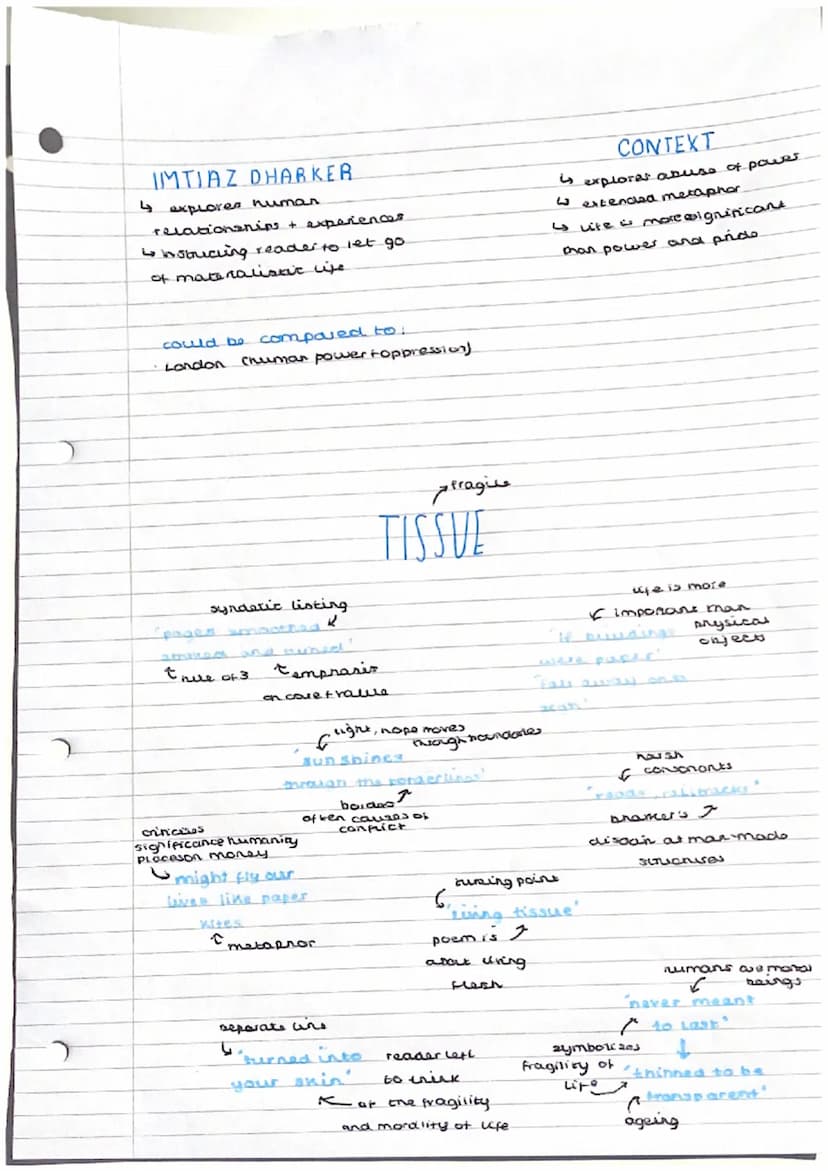 IMTIAZ DHARKER
↳ explores human
relationships + experiences
↳ instructing reader to let go
of materialistic life
CONTEXT
↳ explores abuse of power
↳ extended metaphor
↳ life is more significant
than power and pride
could be compared to:
· London (human power + oppression)
fragile
TISSUE
syndetic listing
'pages smoothed
stroked and turned'
rule of 3
emphasis
on care + value
life is more
important than
physical
objects
'If buildings
were paper'
'fall away on a
light, hope moves
through boundaries
'sun shines
through the borderlines'
borders
often causes of
conflict
harsh
consonants
'roads, railtracks'
Dharker's
disdain at man-made
structures
criticises
significance humanity
places on money
might fly our
lives like paper
kites
metaphor
turning point
'living tissue'
poem is
about living
flesh
humans are mortal
beings
'never meant
to last'
symbolises
fragility of
life
'thinned to be
transparent'
ageing
separate line
'turned into
your skin'
reader left
to think
of the fragility
and mortality of life